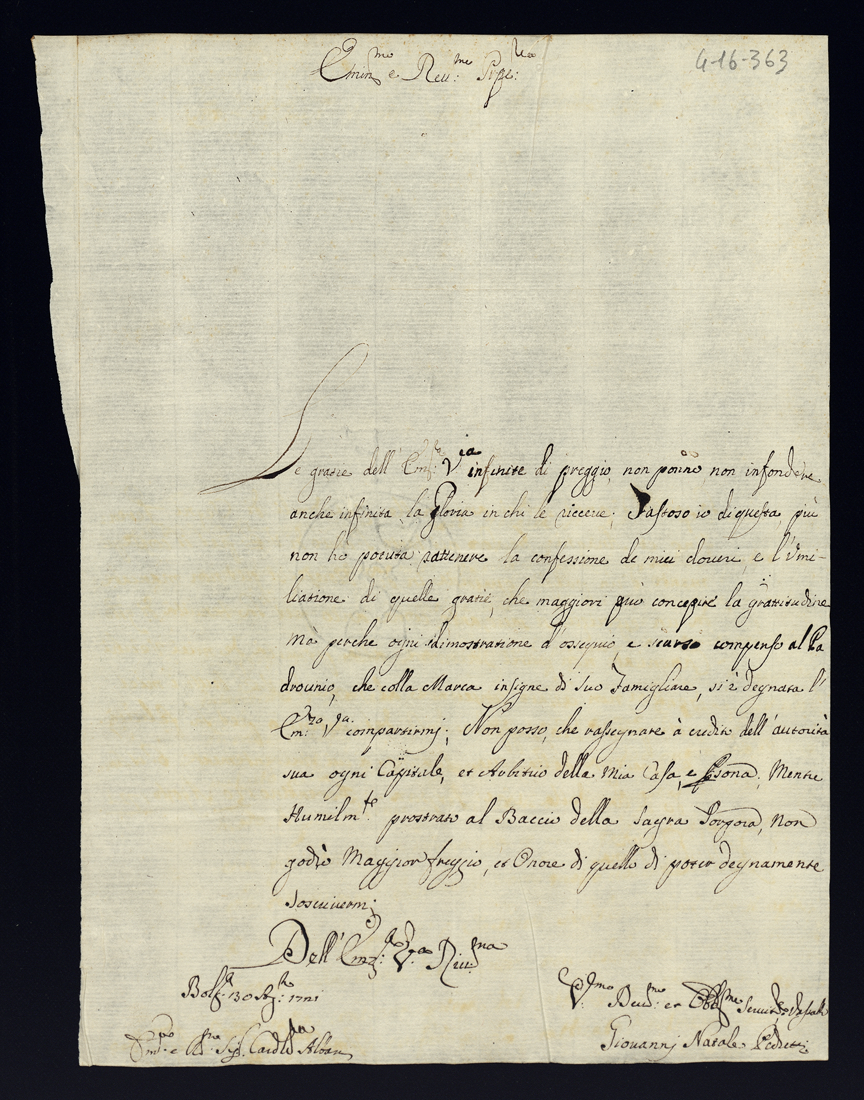 Emin.mo e Rev.me Prpe:
4-16-363
Le gratie dell'Em: V.ra infinite di preggio, non ponno non infondere
anche infinita, la Gloria in chi le riceve; Fastoso io di questa, più
non hò potuta rattenere la confessione de miei doveri, e l'Umi-
liatione di quelle gratie, che maggiori può concepire la grattitudine
Mà perche ogni dimostratione d'ossequio, e scarso compenso al Pa
drocinio, che colla Marca insigne di suo Famigliare, si è degnata l'
Em: V.a compartirmj; Non posso, che rassegnare à credito dell'autorità
sua ogni Capitale, et Arbitrio della Mia Casa, e Psona; Mentre
Humilm.te prostrato al Baccio della Sagra Porpora, Non
godrò Maggior freggio, et Onore di quello di poter degnamente
soscrivermj
Dell'Em: V.ra Rev.ma
30 1721
V.mo Dev.mo et Obb.mo
Sig. Card.le Albani
Giovannj Natale